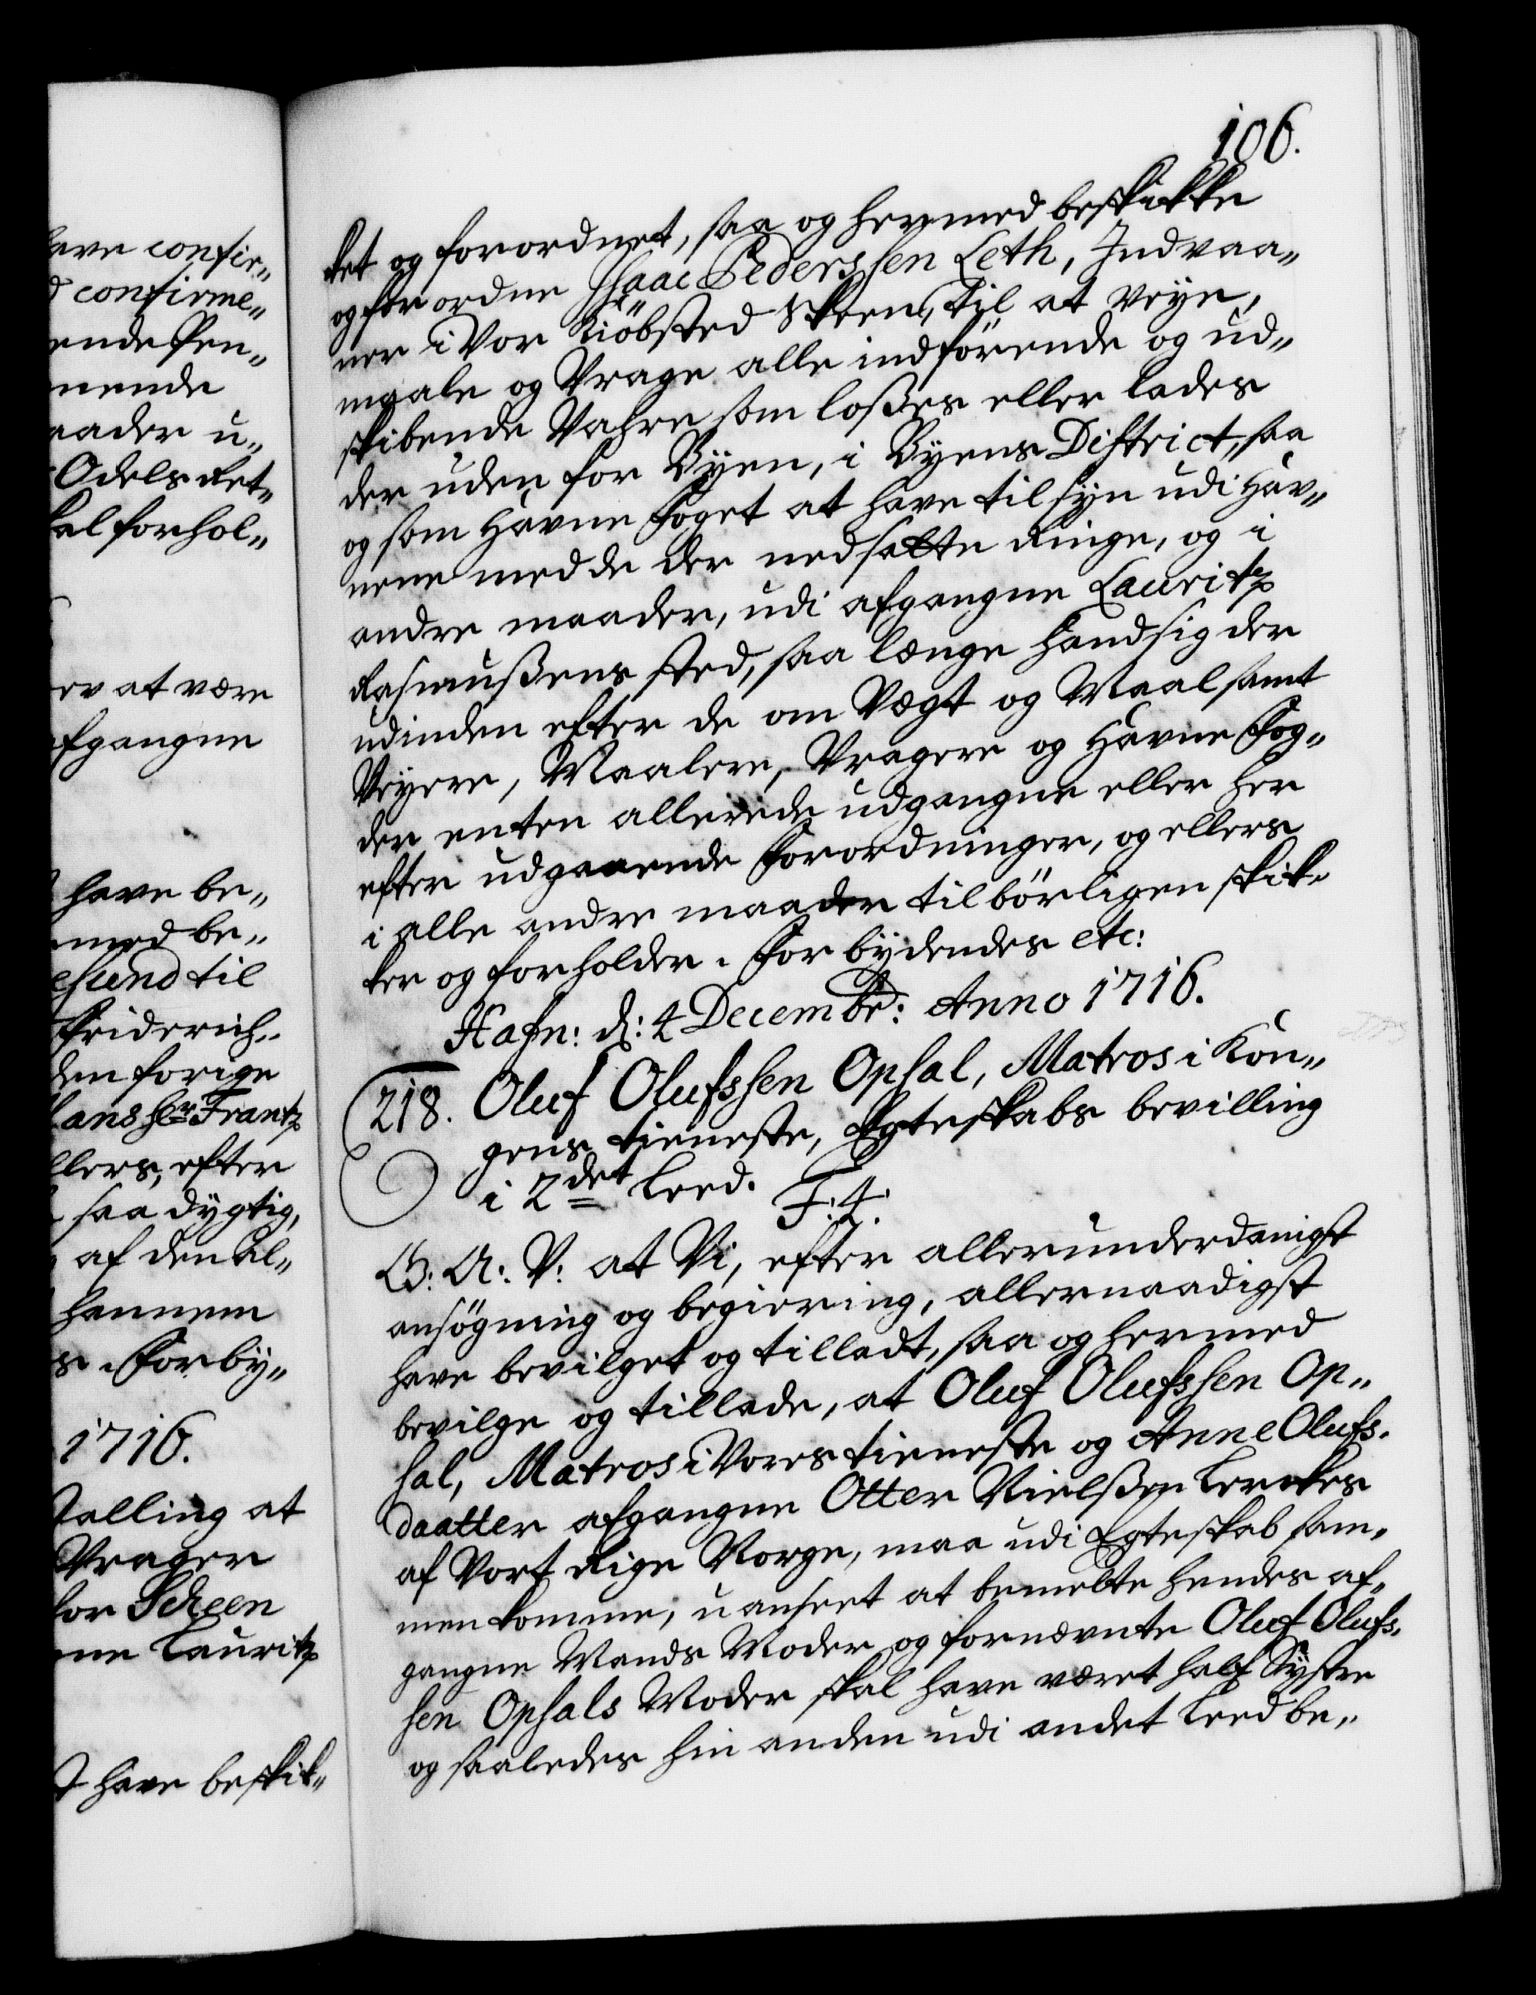 106.
ket og forordnet, saa og hermed beskikke
og forordne Isaac Pederssen Leth, Indvaa„
ner i Vor Kiöbsted Skeen, til at veye,
maale og Vrage alle indförende og ud„
skibende Vahre som losses eller lades
der uden for Byen, i Byens District, saa
og som Havne Foget at have tilsyn udi Hav„
nene med de der nedsatte Ringe, og i
andre maader, udi afgangne Lauritz
Rasmussens sted, saa længe hand sig der
udinden efter de om Vegt og Maal samt
Veyere, Maalere, Vragere og Havne Fog„
der enten allerede udgangne eller her
efter udgaaende Forordninger, og ellers
i alle andre maader tilbörligen skik„
ker og forholder. Forbydendes etc:
Hafn: d: 4 Decembr: Anno 1716.
218. Oluf Olufssen Opsal, Matros i Kon„
gens tieneste, Egteskabs bevilling
i 2det Leed. F. 4.
G: A: V: at Vi, efter allerunderdanigst
ansögning og begiering, allernaadigst
have bevilget og tilladt, saa og hermed
bevilge og tillade, at Oluf Olufssen Op„
sal, Matros i Vores tieneste og Anne Olufs„
daatter afgangne Otter Nielssen Lerckes
af Vort Rige Norge, maa udi Egteskab sam„
men komme, uanseet at bemelte hendes af„
gangne Mands Moder og fornævnte Oluf Olufs„
sen Opsals Moder skal have været half Systre
og saaledes hin anden udi andet Leed be„
have confir„
confirme„
ende Pen„
nende
aader u„
Odels Ret„
kal forhol„
at være
afgangne
have be„
med be„
esund til
Friderich„
den forige
Hans her Frantz
ellers, efter
saa dygtig,
af den Al„
hannem
Forby„
1716.
Talling at
Vrager
for Scheen
Lauritz
have beskik„